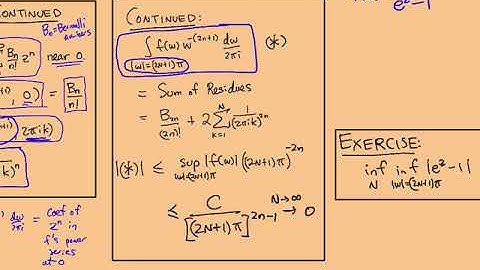 CONTINUED
B_n = Bernoulli
numbers
B_n/n! z^n near 0
, 0) = B_n/n!
2πik)
at 0
dw/2πi = Coef of
z^n in
f's power
series
CONTINUED:
∫_{|w|=(2N+1)π} f(w) w^{-(2n+1)} dw/2πi (*)
= Sum of Residues
= B_{2n}/(2n)! + 2 Σ_{k=1}^{N} 1/(2πik)^{2n}
|(*)| ≤ sup_{|w|=(2N+1)π} |f(w)| ((2N+1)π)^{-2n}
≤ C/[(2N+1)π]^{2n-1} →^{N→∞} 0
e^z-1
EXERCISE:
inf_N inf_{|w|=(2N+1)π} |e^z-1|